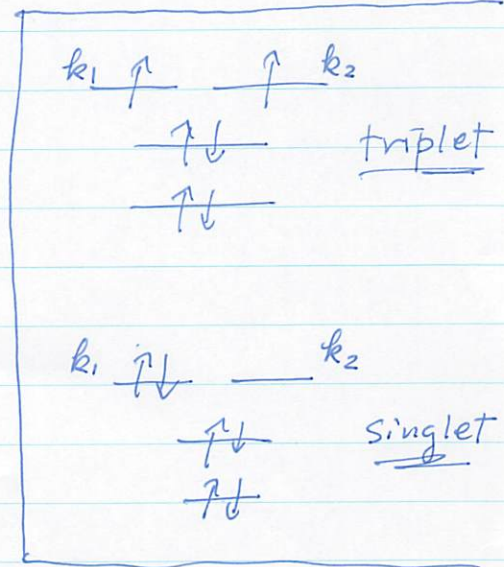 k₁ ↑ ↑ k₂
↑↓ triplet
↑↓
k₁ ↑↓ k₂
↑↓ singlet
↑↓